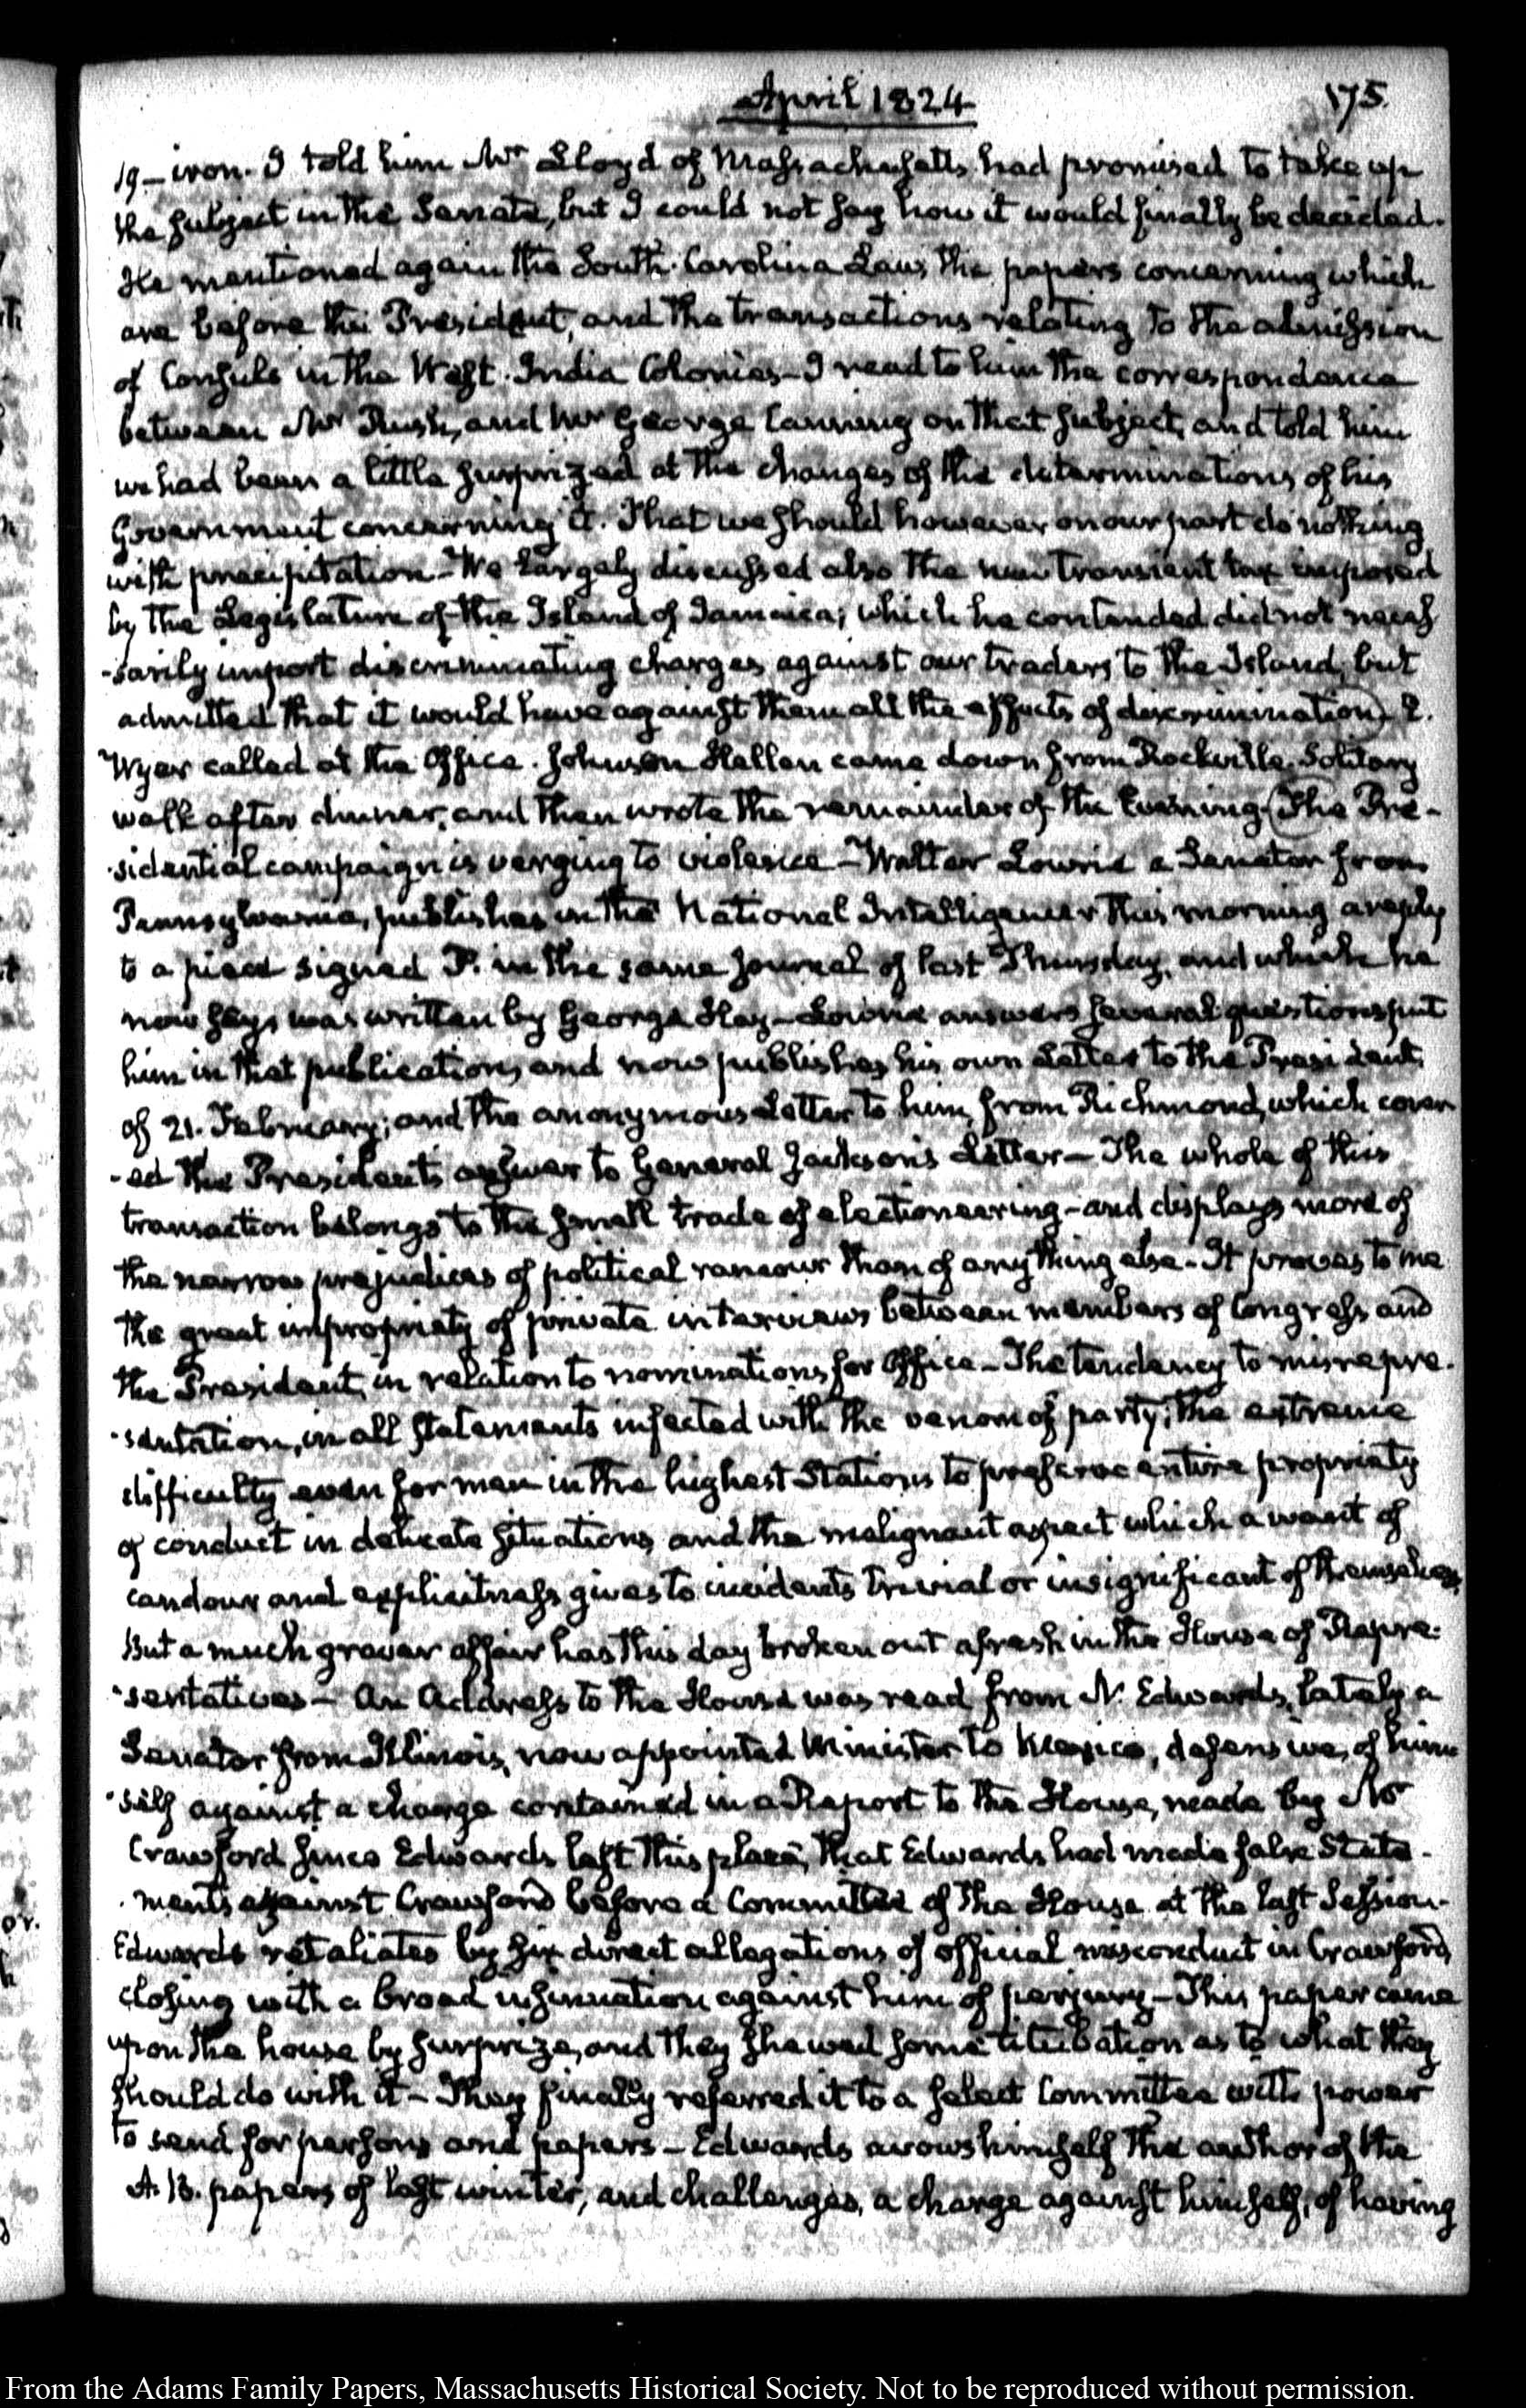 April 1824
175.
19 – iron. I told him Mr Lloyd of Massachusetts had promised to take up
the subject in the Senate, but I could not say how it would finally be decided.
He mentioned again the South-Carolina Law, the papers concerning which
are before the President, and the transactions relating to the admission
of Consuls in the West-India Colonies – I read to him the correspondence
between Mr Rush, and Mr George Canning on that subject, and told him
we had been a little surprized at the changes of the determinations of his
Government concerning it. That we should however on our part do nothing
with precipitation – We largely discussed also the new transient tax imposed
by the Legislature of the Island of Jamaica; which he contended did not neces
-sarily import discriminating charges against our traders to the Island, but
admitted that it would have against them all the effects of discrimination) E.
Wyer called at the Office. Johnson Hellen came down from Rockville. Solitary
walk after dinner, and then wrote the remainder of the Evening. (The Pre-
-sidential campaign is verging to violence – Walter Lowrie a Senator from
Pennsylvania, publishes in the National Intelligencer this morning a reply
to a piece signed P. in the same journal of last Thursday, and which he
now says was written by George Hay – Lowrie answers several questions put
him in that publication, and now publishes his own Letter to the President,
of 21. February; and the anonymous Letter to him, from Richmond, which cover
-ed the President's answer to General Jackson's Letter – The whole of this
transaction belongs to the small trade of electioneering – and displays more of
the narrow prejudices of political rancour than of any thing else – It proves to me
the great impropriety of private interviews between members of Congress and
the President, in relation to nominations for Office – The tendency to misrepre-
-sentation, in all statements infected with the venom of party; the extreme
difficulty even for men in the highest Stations to preserve entire propriety
of conduct in delicate situations, and the malignant aspect which a want of
candour and explicitness gives to incidents trivial or insignificant of themselves.
But a much graver affair has this day broken out afresh in the House of Repre-
-sentatives – An Address to the House was read from N. Edwards, lately a
Senator from Illinois, now appointed Minister to Mexico, defensive, of him
-self against a charge contained in a Report to the House, made by Mr
Crawford since Edwards left this place, that Edwards had made false State-
-ments against Crawford before a Committee of the House at the last Session.
Edwards retaliates by six direct allegations of official misconduct in Crawford,
closing with a broad insinuation against him of perjury – This paper came
upon the house by surprize, and they shewed some titubation as to what they
should do with it – They finally referred it to a select Committee with power
to send for persons and papers – Edwards avows himself the author of the
A. B. papers of last winter, and challenges, a charge against himself, of having
From the Adams Family Papers, Massachusetts Historical Society. Not to be reproduced without permission.